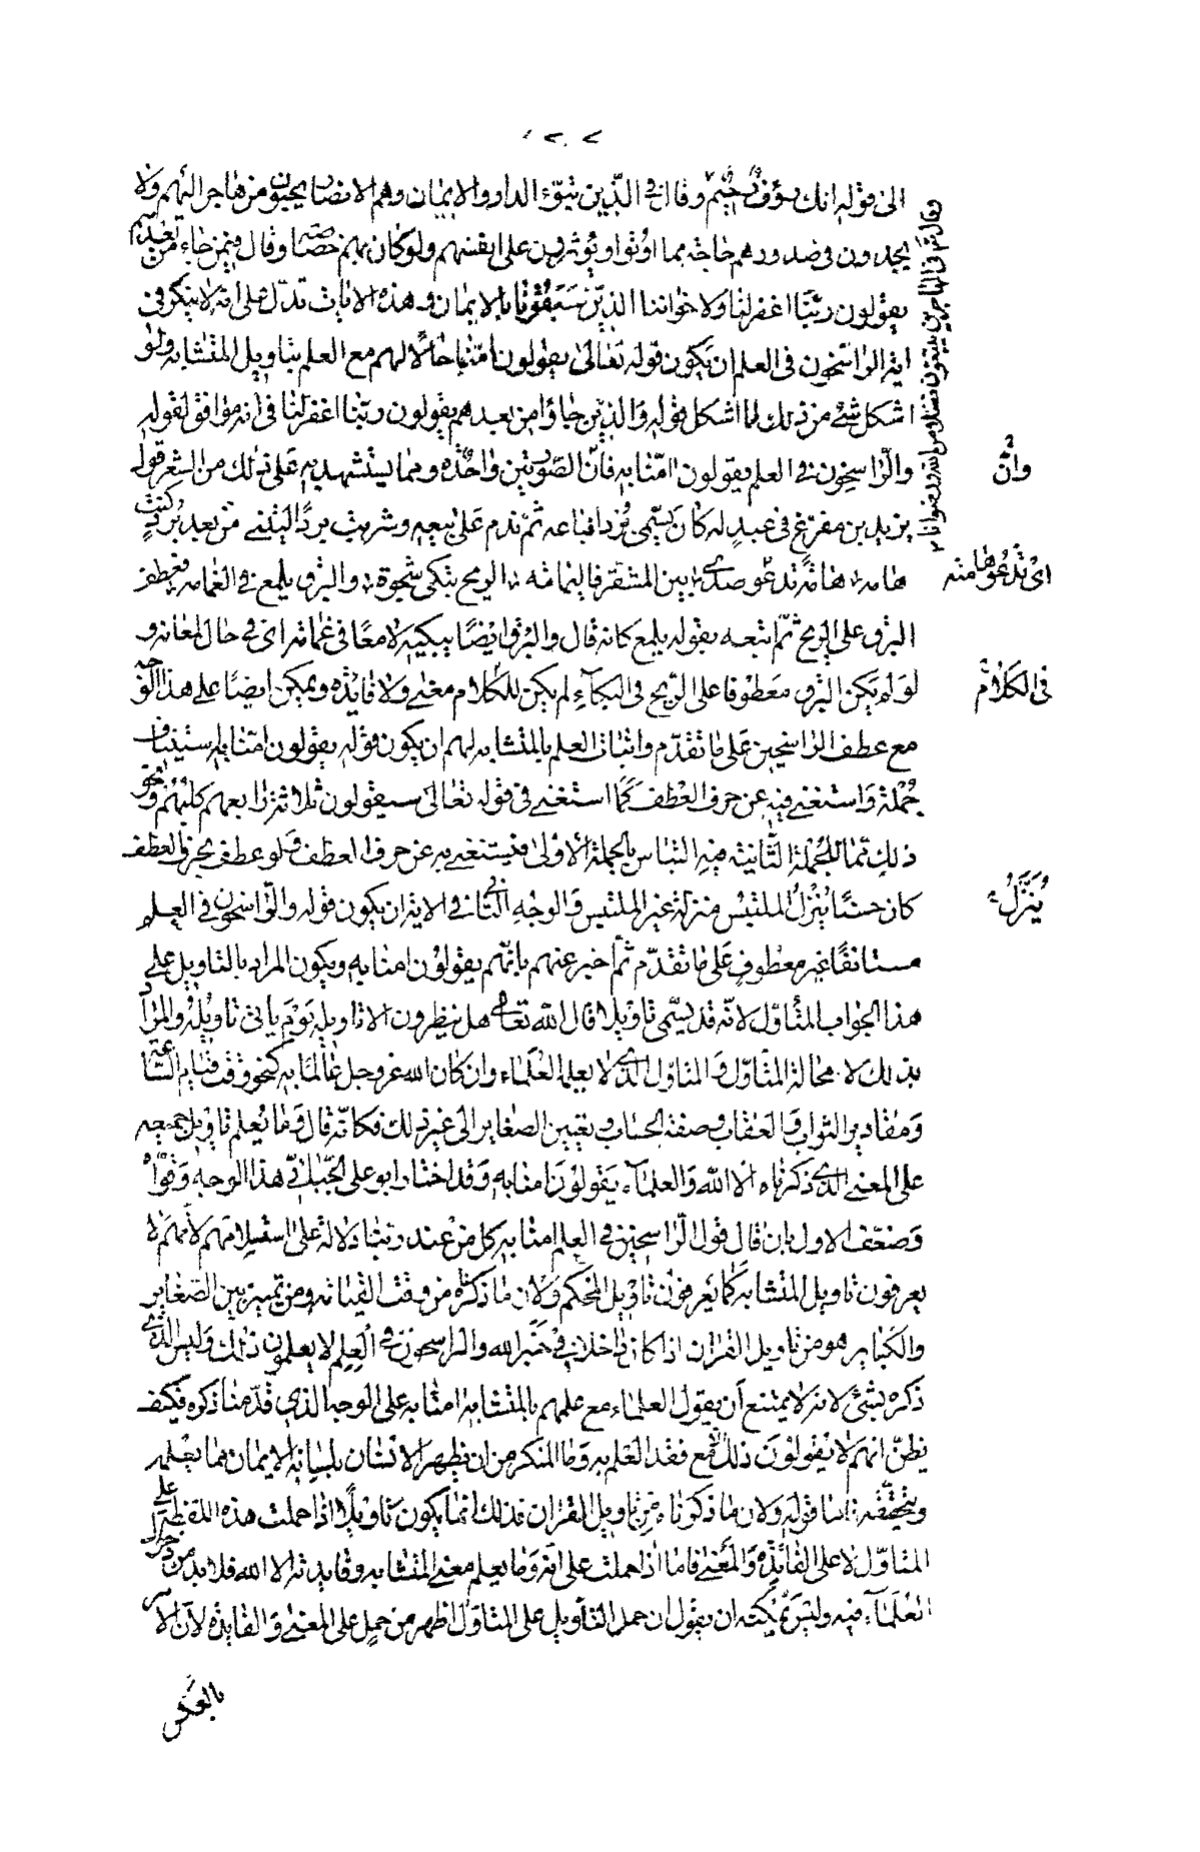 الى قوله انك رؤف رحيم وقال في الذين تبوّؤ الدار والايمان وهم الانصار يحبون من هاجر اليهم ولا
يجدون في صدورهم حاجة مما اوتوا ويؤثرون على انفسهم ولو كان بهم خصاصة وقال فيمن جاء من بعدهم
يقولون ربّنا اغفر لنا ولاخواننا الذين سبقونا بالايمان وهذه الايات تدلّ على انه لا ينكر في
اية الراسخون في العلم ان يكون قوله تعالى يقولون امنّا حالا لهم مع العلم بتاويل المتشابه ولو
اشكل شئ من ذلك لما اشكل قوله والذين جاؤا من بعدهم يقولون ربّنا اغفر لنا في انه موافق لقوله
والرّاسخون في العلم يقولون امنّا به فانّ الصّورتين واحدة ومما يستشهد به على ذلك من الشعر قول
يزيد بن مفرّغ في عبد له كان يسمى بردا فباعه ثمّ ندم على بيعه وشريت بردًا ليتني من بعد برد كنت
هامه هامة تدعو صدى بين المشقر فاليمامه الريح تبكي شجوه والبرق يلمع في الغمامه فعطف
البرق على الريح ثمّ اتبعه بقوله يلمع كانه قال والبرق ايضًا يبكيه لامعًا في غمامة اى في حال لمعانه و
لو لم يكن البرق معطوفا على الريح في البكاء لم يكن للكلام معنى ولا فايدة ويمكن ايضًا على هذا الوجه
مع عطف الراسخين على ما تقدّم واثبات العلم بالمتشابه لهم ان يكون قوله يقولون امنّا به استيناف
جملة واستغنى فيه عن حرف العطف كما استغنى في قوله تعالى سيقولون ثلاثة رابعهم كلبهم ونحو
ذلك مما للجملة الثانية فيه التباس بالجملة الاولى فيستغنى به عن حرف العطف ولو عطف بحرف العطف
كان حسنًا ينزل الملتبس منزلة غير الملتبس والوجه الثاني في الاية ان يكون قوله والرّاسخون في العلم
مستانفًا غير معطوف على ما تقدّم ثمّ اخبر عنهم بانّهم يقولون امنا به ويكون المراد بالتاويل على
هذا الجواب المتأوّل لانّه قد يسمّى تاويلا قال الله تعالى هل ينظرون الا تاويله يوم ياتى تاويله والمراد
بذلك لا محالة المتأوّل والمتاوّل الذي لا يعلمه العلماء وان كان الله عز وجل عالما به كنحو وقت قيام الساعة
ومقادير الثواب والعقاب وصفة الحساب وتعيين الصغاير الى غير ذلك فكانّه قال وما يعلم تاويل جميعه
على المعنى الذي ذكرناه الا الله والعلماء يقولون امنا به وقد اختار ابو على الجبّائي هذا الوجه وقوّاه
وضعّف الاول بان قال قول الرّاسخين في العلم امنّا به كل من عند ربّنا دلالة على استسلامهم لانّهم لا
يعرفون تاويل المتشابه كما يعرفون تاويل المحكم ولان ما ذكرناه من وقت القيامة ومن تمييز بين الصّغاير
والكباير هو من تاويل القران اذا كان داخلا في خبر الله والراسخون في العلم لا يعلمون ذلك وليس الذي
ذكره بشئ لانه لا يمتنع أن يقول العلماء مع علمهم بالمتشابه امنا به على الوجه الذي قدّمنا ذكره فكيف
يظنّ انهم لا يقولون ذلك الا مع فقد العلم به وما المنكر من ان يظهر الانسان بلسانه الايمان بما يعلمه
ويتحققه فاما قوله ولان ما ذكرناه من تاويل القران فذلك انما يكون تاويلا اذا حملت هذه اللفظة على
المتاوّل لا على الفائدة والمعنى فاما اذا حملت على انّه وما يعلم معنى المتشابه وفايدته الا الله فلا بد من دخول
العلماء فيه وليس يمكنه ان يقول ان حمل التأويل على المتاوّل اظهر من حمله على المعنى والفايدة لان الامر
بالعكس
وقال تعالى في المهاجرين يبتغون فضلا من الله ورضوانا
وانّ
اى تدعوها منه
في الكلام
ينزّل